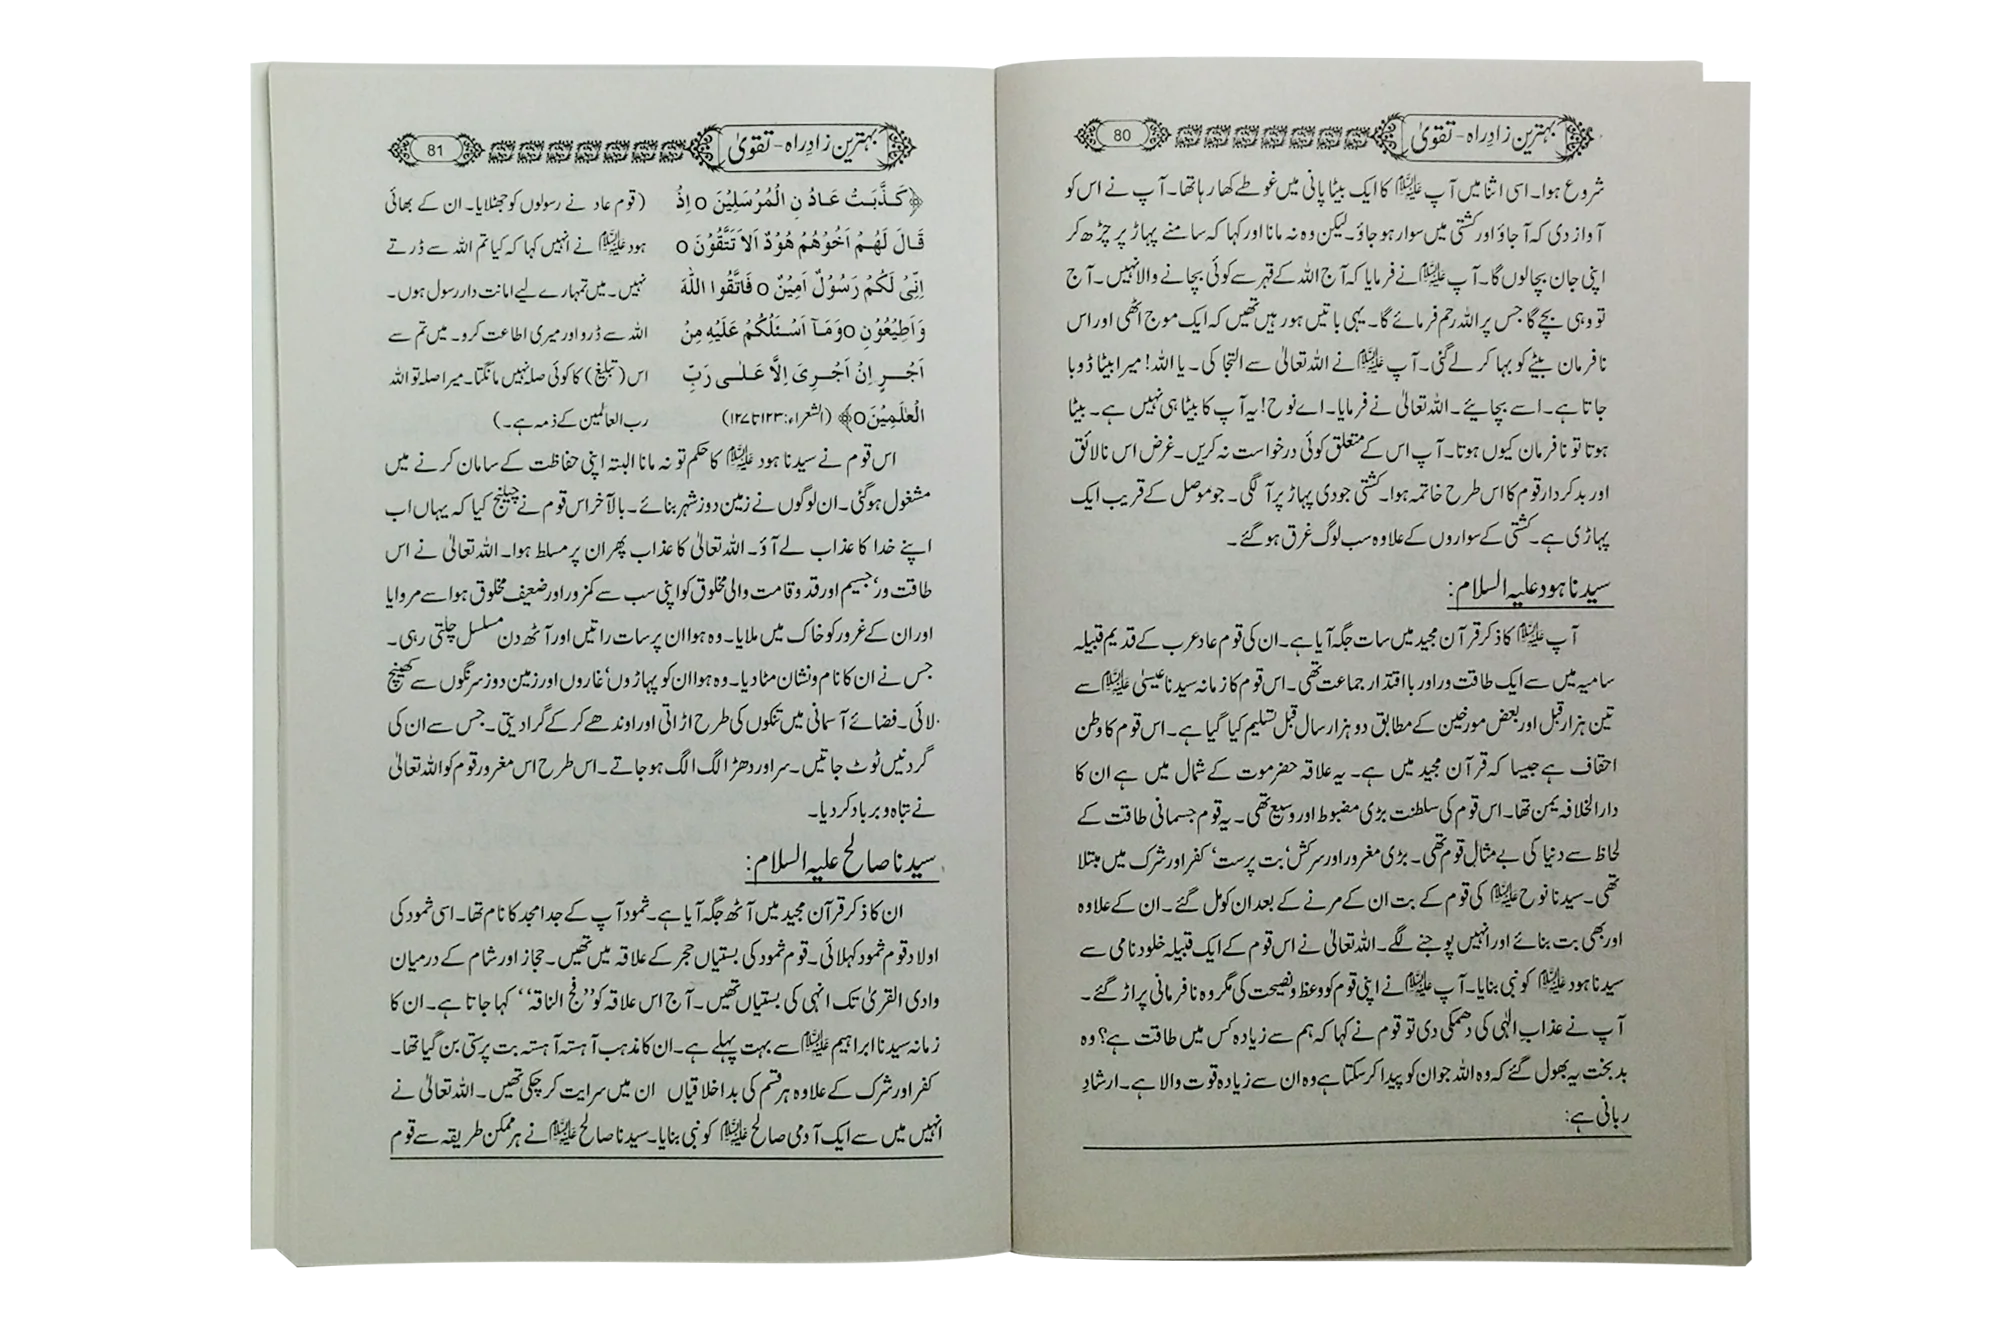 بہترین زادِ راہ - تقویٰ
80
شروع ہوا۔ اسی اثنا میں آپ علیہ السلام کا ایک بیٹا پانی میں غوطے کھا رہا تھا۔ آپ نے اس کو
آواز دی کہ آجاؤ اور کشتی میں سوار ہو جاؤ۔ لیکن وہ نہ مانا اور کہا کہ سامنے پہاڑ پر چڑھ کر
اپنی جان بچالوں گا۔ آپ علیہ السلام نے فرمایا کہ آج اللہ کے قہر سے کوئی بچانے والا نہیں۔ آج
تو وہی بچے گا جس پر اللہ رحم فرمائے گا۔ یہی باتیں ہو رہیں تھیں کہ ایک موج اٹھی اور اس
نافرمان بیٹے کو بہا کر لے گئی۔ آپ علیہ السلام نے اللہ تعالیٰ سے التجا کی۔ یا اللہ! میرا بیٹا ڈوبا
جاتا ہے۔ اسے بچایئے۔ اللہ تعالیٰ نے فرمایا۔ اے نوح! یہ آپ کا بیٹا ہی نہیں ہے۔ بیٹا
ہوتا تو نافرمان کیوں ہوتا۔ آپ اس کے متعلق کوئی درخواست نہ کریں۔ غرض اس نالائق
اور بدکردار قوم کا اس طرح خاتمہ ہوا۔ کشتی جودی پہاڑ پر آلگی۔ جو موصل کے قریب ایک
پہاڑی ہے۔ کشتی کے سواروں کے علاوہ سب لوگ غرق ہو گئے۔
سیدنا ہود علیہ السلام:
آپ علیہ السلام کا ذکر قرآن مجید میں سات جگہ آیا ہے۔ ان کی قوم عاد عرب کے قدیم قبیلہ
سامیہ میں سے ایک طاقت ور اور با اقتدار جماعت تھی۔ اس قوم کا زمانہ سیدنا عیسیٰ علیہ السلام سے
تین ہزار قبل اور بعض مورخین کے مطابق دو ہزار سال قبل تسلیم کیا گیا ہے۔ اس قوم کا وطن
احقاف ہے جیسا کہ قرآن مجید میں ہے۔ یہ علاقہ حضرموت کے شمال میں ہے ان کا
دارالخلافہ یمن تھا۔ اس قوم کی سلطنت بڑی مضبوط اور وسیع تھی۔ یہ قوم جسمانی طاقت کے
لحاظ سے دنیا کی بے مثال قوم تھی۔ بڑی مغرور اور سرکش‘ بت پرست‘ کفر اور شرک میں مبتلا
تھی۔ سیدنا نوح علیہ السلام کی قوم کے بت ان کے مرنے کے بعد ان کو مل گئے۔ ان کے علاوہ
اور بھی بت بنائے اور انہیں پوجنے لگے۔ اللہ تعالیٰ نے اس قوم کے ایک قبیلہ خلود نامی سے
سیدنا ہود علیہ السلام کو نبی بنایا۔ آپ علیہ السلام نے اپنی قوم کو وعظ و نصیحت کی مگر وہ نافرمانی پر اڑ گئے۔
آپ نے عذاب الٰہی کی دھمکی دی تو قوم نے کہا کہ ہم سے زیادہ کس میں طاقت ہے؟ وہ
بدبخت یہ بھول گئے کہ وہ اللہ جو ان کو پیدا کر سکتا ہے وہ ان سے زیادہ قوت والا ہے۔ ارشادِ
ربانی ہے:
بہترین زادِ راہ - تقویٰ
81
﴿كَذَّبَتْ عَادُ نِ الْمُرْسَلِيْنَ ٥ اِذْ
قَالَ لَهُمْ اَخُوْهُمْ هُوْدٌ اَلاَ تَتَّقُوْنَ ٥
اِنِّىْ لَكُمْ رَسُوْلٌ اَمِيْنٌ ٥ فَاتَّقُوا اللّٰهَ
وَاَطِيْعُوْنِ ٥ وَمَآ اَسْئَلُكُمْ عَلَيْهِ مِنْ
اَجْرٍ اِنْ اَجْرِىَ اِلَّا عَلٰى رَبِّ
الْعٰلَمِيْنَ ٥﴾ (الشعراء: ۱۲۳ تا ۱۲۷)
(قوم عاد نے رسولوں کو جھٹلایا۔ ان کے بھائی
ہود علیہ السلام نے انہیں کہا کہ کیا تم اللہ سے ڈرتے
نہیں۔ میں تمہارے لیے امانت دار رسول ہوں۔
اللہ سے ڈرو اور میری اطاعت کرو۔ میں تم سے
اس (تبلیغ) کا کوئی صلہ نہیں مانگتا۔ میرا صلہ تو اللہ
رب العالمین کے ذمہ ہے۔)
اس قوم نے سیدنا ہود علیہ السلام کا حکم تو نہ مانا البتہ اپنی حفاظت کے سامان کرنے میں
مشغول ہو گئی۔ ان لوگوں نے زمین دوز شہر بنائے۔ بالآخر اس قوم نے چیلنج کیا کہ یہاں اب
اپنے خدا کا عذاب لے آؤ۔ اللہ تعالیٰ کا عذاب پھر ان پر مسلط ہوا۔ اللہ تعالیٰ نے اس
طاقت ور‘ جسیم اور قد و قامت والی مخلوق کو اپنی سب سے کمزور اور ضعیف مخلوق ہوا سے مروایا
اور ان کے غرور کو خاک میں ملایا۔ وہ ہوا ان پر سات راتیں اور آٹھ دن مسلسل چلتی رہی۔
جس نے ان کا نام و نشان مٹا دیا۔ وہ ہوا ان کو پہاڑوں‘ غاروں اور زمین دوز سرنگوں سے کھینچ
لائی۔ فضائے آسمانی میں تنکوں کی طرح اڑاتی اور اوندھے کر کے گرا دیتی۔ جس سے ان کی
گردنیں ٹوٹ جاتیں۔ سر اور دھڑ الگ الگ ہو جاتے۔ اس طرح اس مغرور قوم کو اللہ تعالیٰ
نے تباہ و برباد کر دیا۔
سیدنا صالح علیہ السلام:
ان کا ذکر قرآن مجید میں آٹھ جگہ آیا ہے۔ ثمود آپ کے جد امجد کا نام تھا۔ اسی ثمود کی
اولاد قوم ثمود کہلائی۔ قوم ثمود کی بستیاں حجر کے علاقہ میں تھیں۔ حجاز اور شام کے درمیان
وادی القریٰ تک انہی کی بستیاں تھیں۔ آج اس علاقہ کو ’’فج الناقہ‘‘ کہا جاتا ہے۔ ان کا
زمانہ سیدنا ابراہیم علیہ السلام سے بہت پہلے ہے۔ ان کا مذہب آہستہ آہستہ بت پرستی بن گیا تھا۔
کفر اور شرک کے علاوہ ہر قسم کی بداخلاقیاں ان میں سرایت کر چکی تھیں۔ اللہ تعالیٰ نے
انہیں میں سے ایک آدمی صالح علیہ السلام کو نبی بنایا۔ سیدنا صالح علیہ السلام نے ہر ممکن طریقہ سے قوم